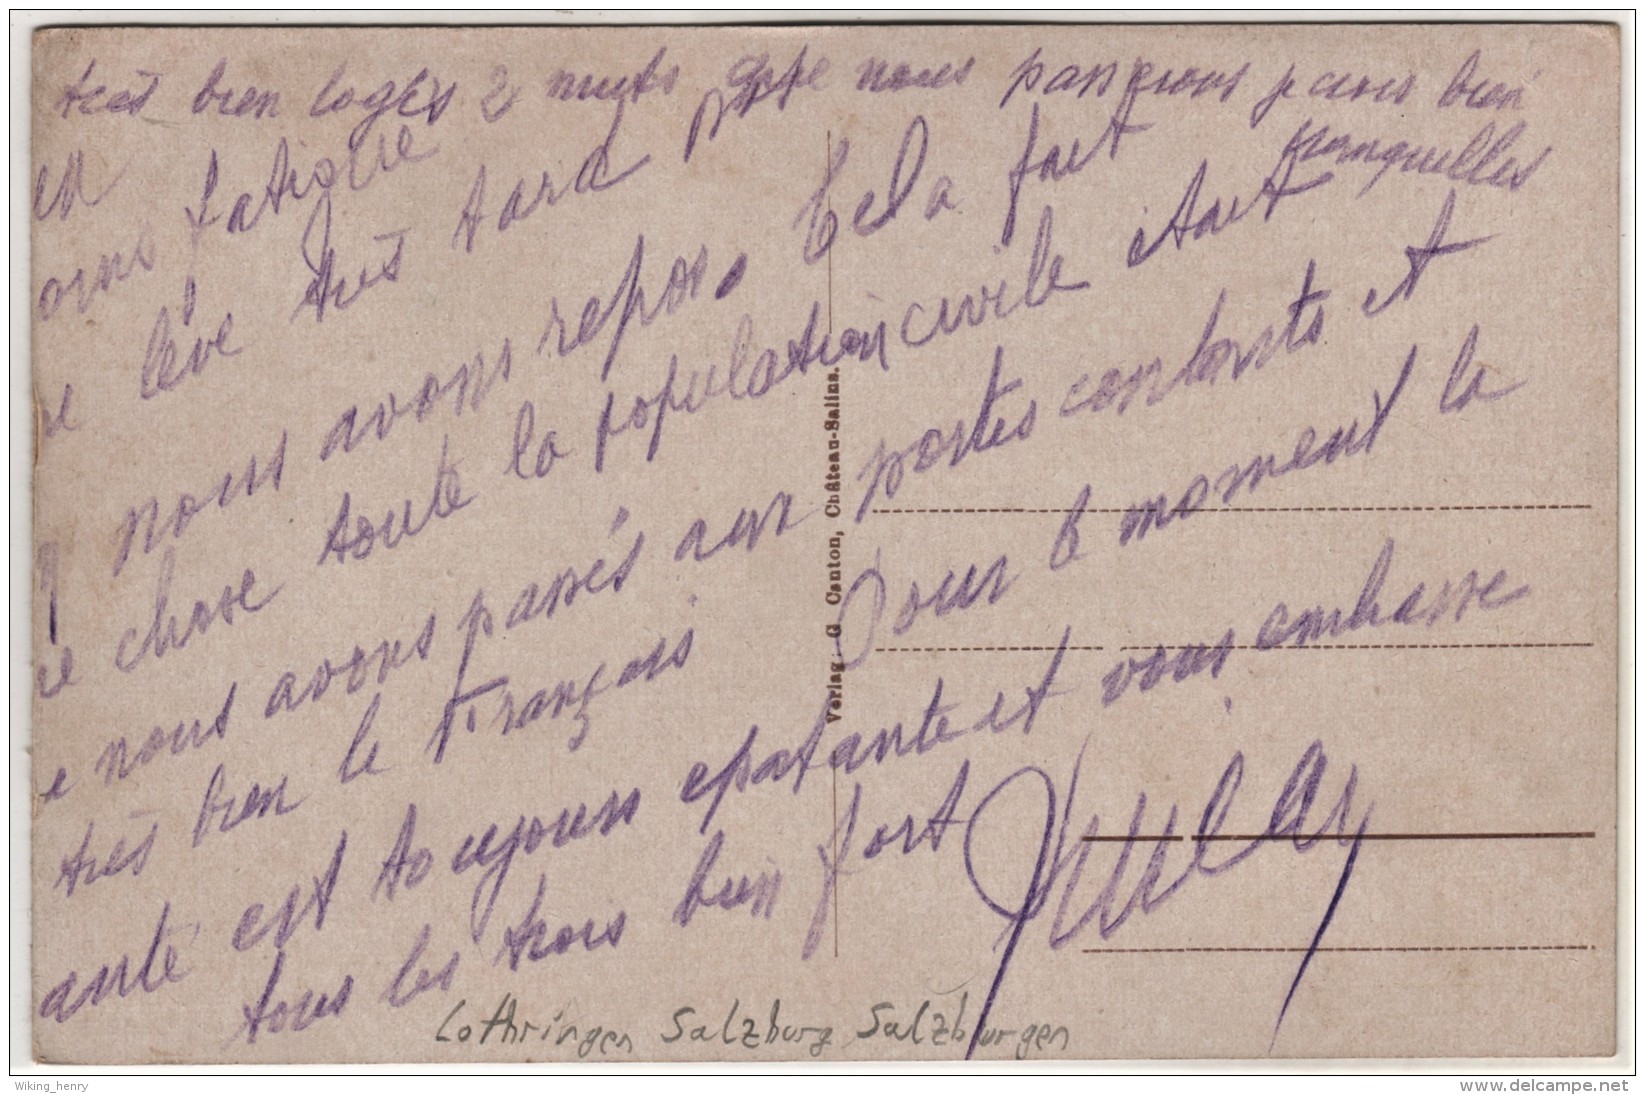 très bien logés 2 nuits que nous passerons je crois bien
tranquilles
en
fatigue
lève très tard
nous avons repos. Cela fait
chose toute la population civile était
nous avons passés aux portes contents et
très bien le Français. Pour le moment la
anté est toujours épatante et vous embrasse
tous les trois bien fort
Verlag: G. Canton, Château-Salins.
Lothringen Salzburg Salzburgen
Wiking_henry
delcampe.net